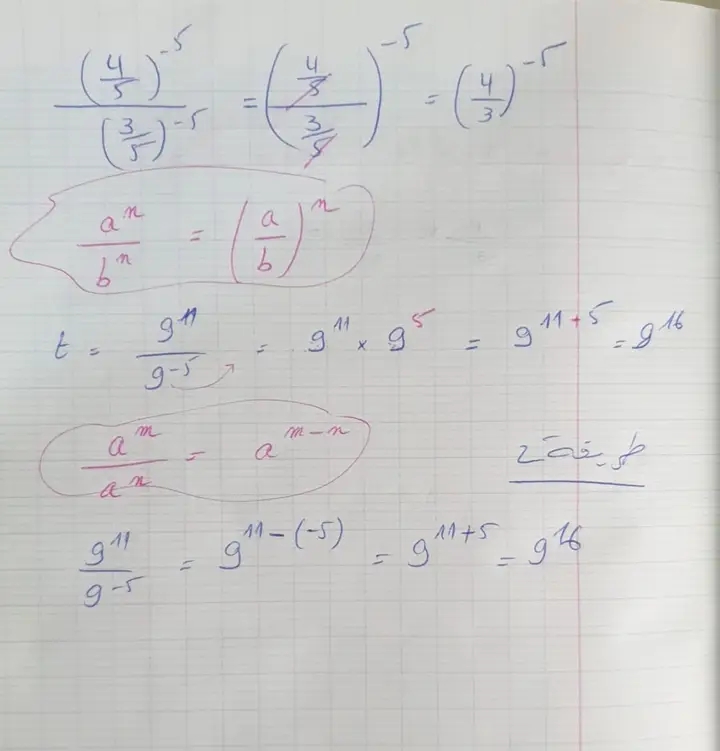 (4/5)^-5 / (3/5)^-5 = ((4/5) / (3/5))^-5 = (4/3)^-5
a^n / b^n = (a/b)^n
t = 9^11 / 9^-5 = 9^11 × 9^5 = 9^11+5 = 9^16
a^m / a^n = a^m-n
9^11 / 9^-5 = 9^11-(-5) = 9^11+5 = 9^16